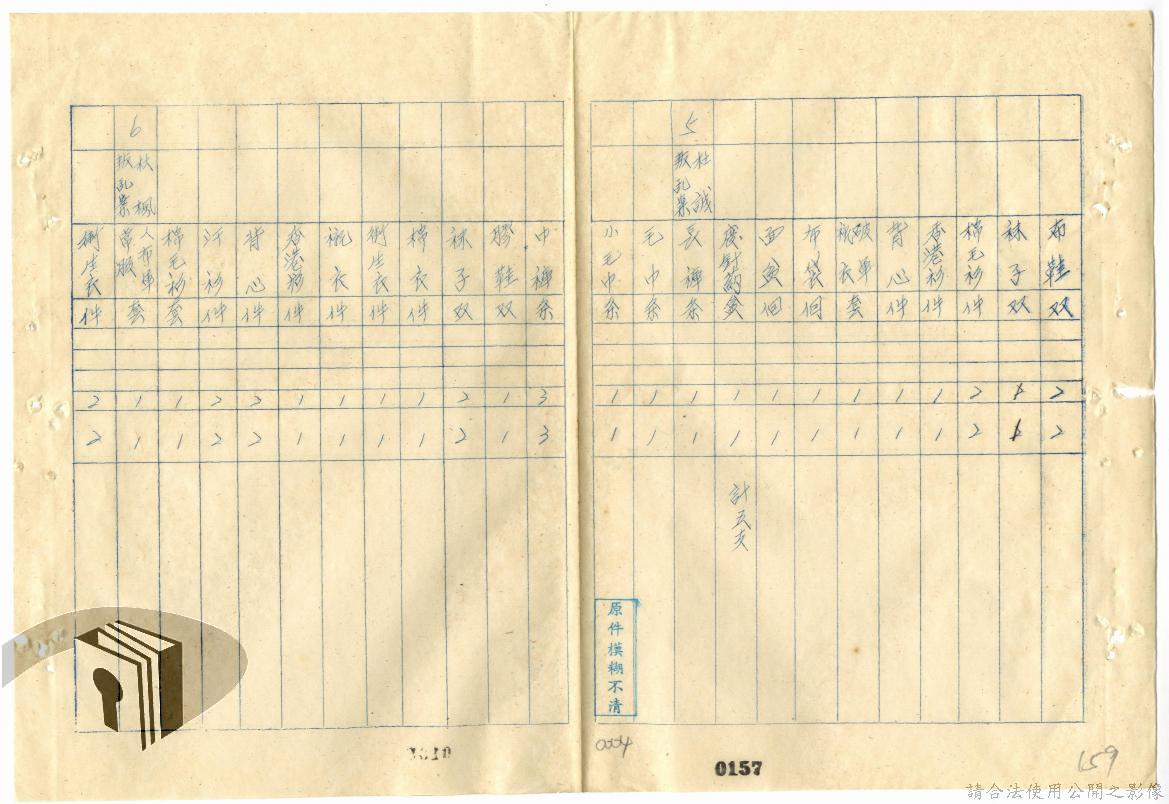 布鞋 双 2 2
袜子 双 1 1
棉毛衫 件 2 2
香港衫 件 1 1
背心 件 1 1
破單衬衣 套 1 1
布袋 個 1 1
面盆 個 1 1
針药盒 1 1 計五支
5 杜誠 叛乱案 長褲 条 1 1
毛巾 条 1 1
小毛巾 条 1 1
中褲 条 3 3
膠鞋 双 1 1
袜子 双 2 2
棉衣 件 1 1
衛生衣 件 1 1
衬衣 件 1 1
香港衫 件 1 1
背心 件 2 2
汗衫 件 2 2
棉毛衫 套 1 1
6 杖楓 叛乱案 人布單常服 套 1 1
衛生衣 件 2 2
原件模糊不清
0157
159
請合法使用公開之影像